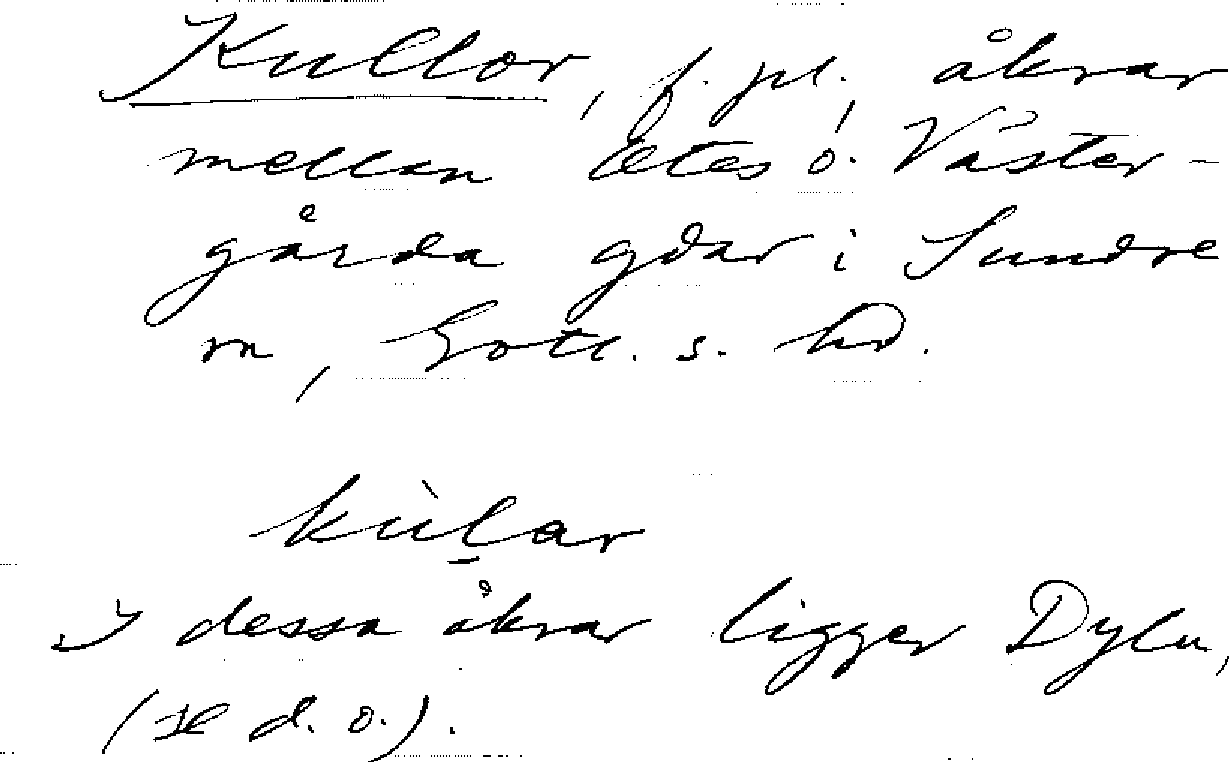 Kullor, f. pl., åkrar
mellanЕтes o. Väster-
gårda gdar i Sundre
sn, Gotl. s. hd.
kùlar
I dessa åkrar ligger Dylu,
(se d. o.).